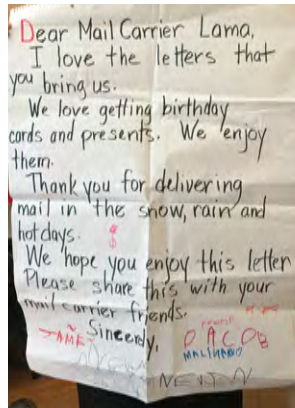 Dear Mail Carrier Lama,
I love the letters that
you bring us.
We love getting birthday
cards and presents. We enjoy
them.
Thank you for delivering
mail in the snow, rain and
hot days.
We hope you enjoy this letter
Please share this with your
mail carrier friends.
Sincerely,